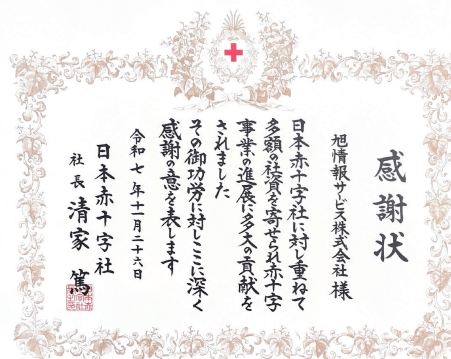 感謝状
旭情報サービス株式会社 様
日本赤十字社に対し重ねて
多額の社資を寄せられ赤十字
事業の進展に多大の貢献を
されました
その御功労に対しここに深く
感謝の意を表します
令和七年十一月二十六日
日本赤十字社
社長 清家 篤